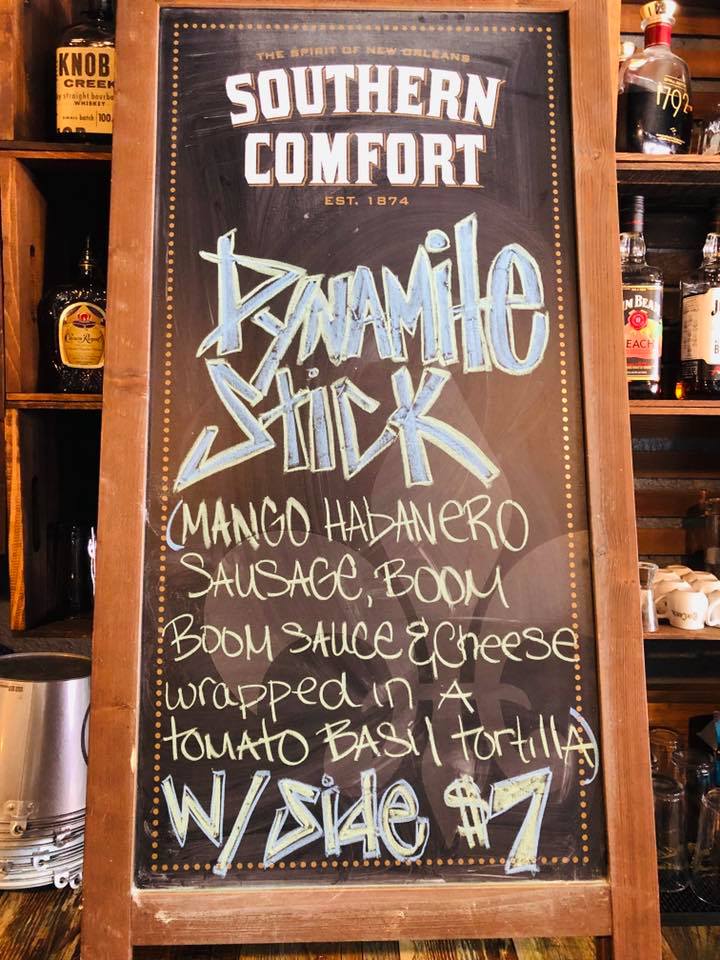 THE SPIRIT OF NEW ORLEANS
SOUTHERN
COMFORT
EST. 1874
DYNAMitE
StiCK
(MANGO HAbANERO
SAUSAGE, BOOM
BOOM SAUCE & Cheese
wrapped in A
tOMATO BASil tortillA)
W/ Side $7
KNOB
CREEK
straight bourbon
WHISKEY
batch 100
Crown Royal
1792
JIM BEAM
PEACH